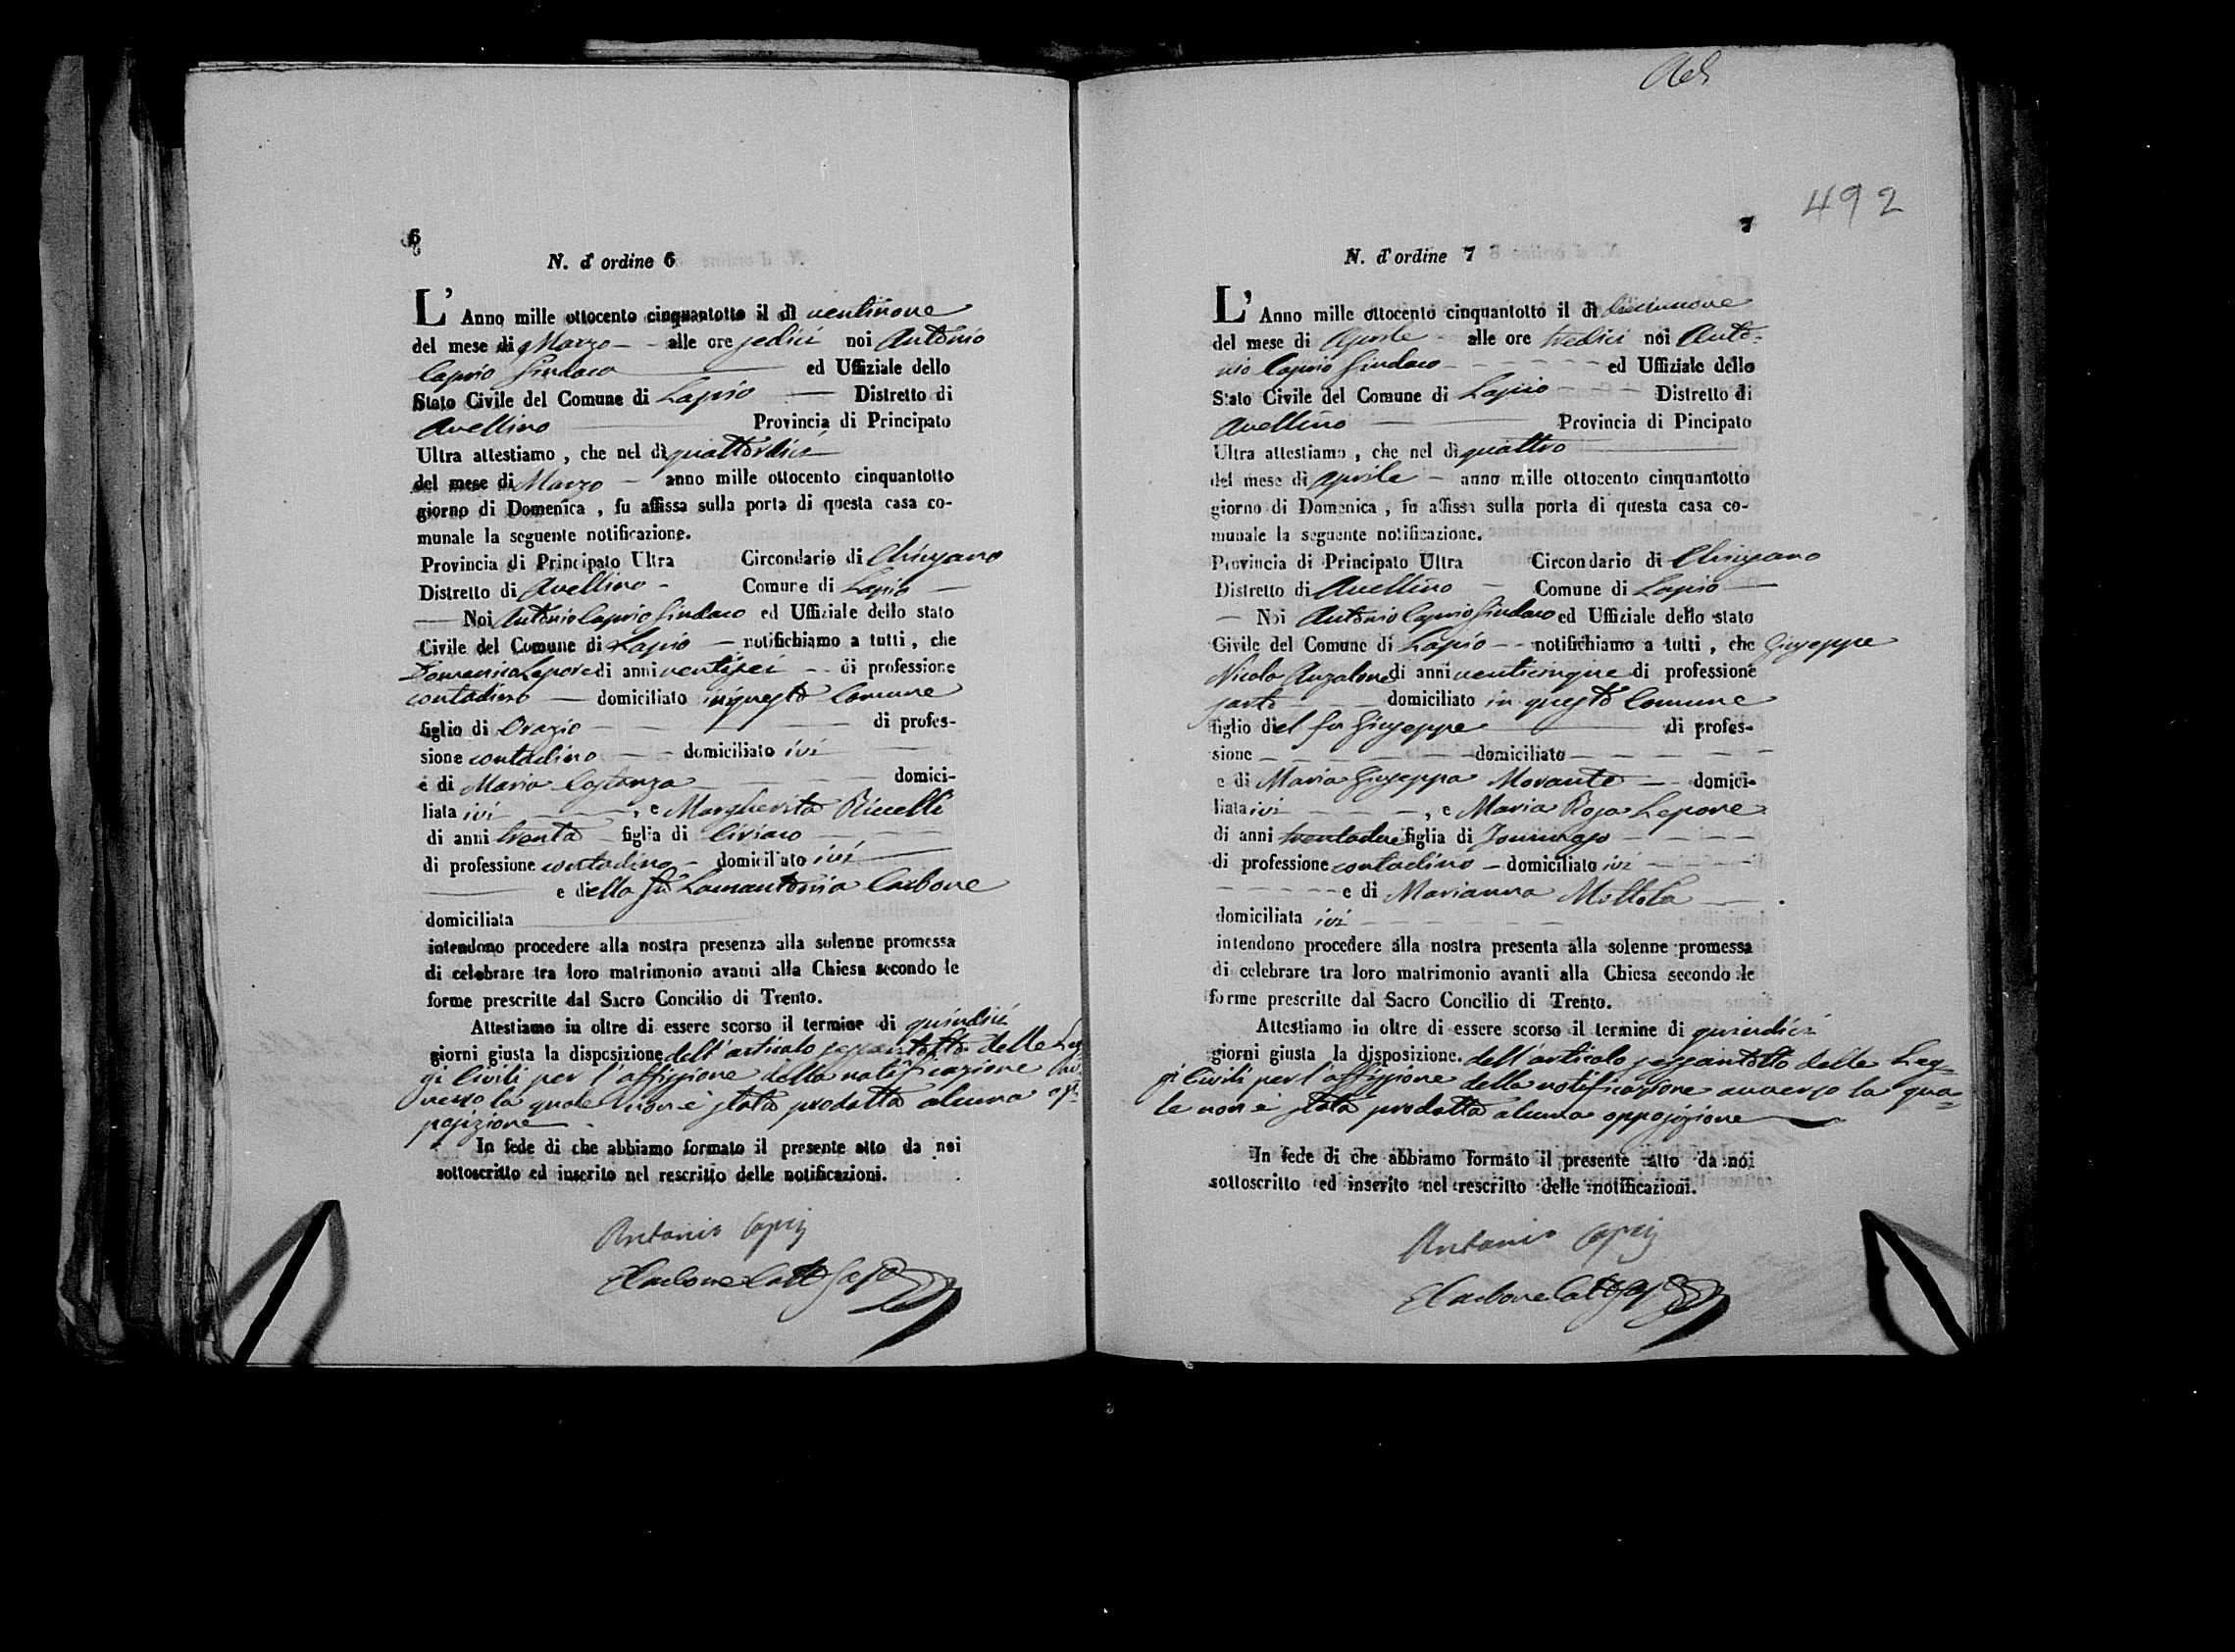 6
N. d'ordine 6
L'Anno mille ottocento cinquantotto il dì ventinove
del mese di Marzo - - alle ore sedici noi Antonio
Caprio Sindaco ed Uffiziale dello
Stato Civile del Comune di Lapio Distretto di
Avellino Provincia di Principato
Ultra attestiamo , che nel dì quattordici
del mese di Marzo - anno mille ottocento cinquantotto
giorno di Domenica , fu affissa sulla porta di questa casa co-
munale la seguente notificazione.
Provincia di Principato Ultra Circondario di Chiusano
Distretto di Avellino - Comune di Lapio
Noi Antonio Caprio Sindaco ed Uffiziale dello stato
Civile del Comune di Lapio - notifichiamo a tutti , che
Domenico Lepore di anni ventisei - - di professione
contadino - domiciliato in questo Comune
figlio di Orazio di profes-
sione contadino - - domiciliato ivi
e di Maria Costanza domici-
liata ivi , e Margherita Ricelli
di anni trenta figlia di Ciriaco
di professione contadino - domiciliato ivi
e della fu Lamantonia Carbone
domiciliata
intendono procedere alla nostra presenza alla solenne promessa
di celebrare tra loro matrimonio avanti alla Chiesa secondo le
forme prescritte dal Sacro Concilio di Trento.
Attestiamo in oltre di essere scorso il termine di quindici
giorni giusta la disposizione dell'articolo sessantotto delle Leg-
gi Civili per l'affissione della notificazione av-
verso la quale non è stata prodotta alcuna op-
posizione.
In fede di che abbiamo formato il presente atto da noi
sottoscritto ed inserito nel rescritto delle notificazioni.
Antonio Caprio
7
492
N. d'ordine 7
L'Anno mille ottocento cinquantotto il dì diecinnove
del mese di Aprile alle ore tredici noi Anto-
nio Caprio Sindaco ed Uffiziale dello
Stato Civile del Comune di Lapio Distretto di
Avellino Provincia di Pincipato
Ultra attestiamo , che nel dì quattro
del mese di aprile - anno mille ottocento cinquantotto
giorno di Domenica , fu affissa sulla porta di questa casa co-
munale la seguente notificazione.
Provincia di Principato Ultra Circondario di Chiusano
Distretto di Avellino - Comune di Lapio
- Noi Antonio Caprio Sindaco ed Uffiziale dello stato
Civile del Comune di Lapio - - notifichiamo a tutti , che Giuseppe
Nicola Anzalone di anni venticinque di professione
sarto domiciliato in questo Comune
figlio del fu Giuseppe di profes-
sione domiciliato
e di Maria Giuseppa Morante domici-
liata ivi , e Maria Rosa Lepore
di anni trentadue figlia di Tommaso
di professione contadino - domiciliato ivi
e di Marianna Mottola
domiciliata ivi
intendono procedere alla nostra presenta alla solenne promessa
di celebrare tra loro matrimonio avanti alla Chiesa secondo le
forme prescritte dal Sacro Concilio di Trento.
Attestiamo in oltre di essere scorso il termine di quindici
giorni giusta la disposizione. dell'articolo sessantotto delle Leg-
gi Civili per l'affissione della notificazione avverso la qua-
le non è stata prodotta alcuna opposizione
In fede di che abbiamo formato il presente atto da noi
sottoscritto ed inserito nel rescritto delle notificazioni.
Antonio Caprio